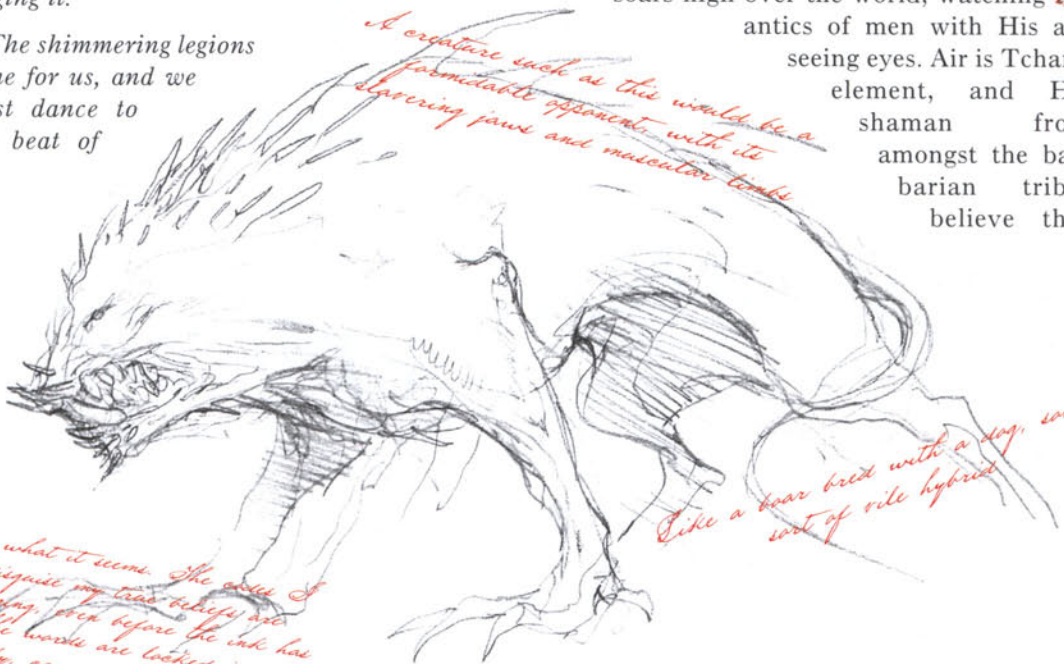 ging it.
The shimmering legions
e for us, and we
st dance to
beat of
soars high over the world, watching
antics of men with His a
seeing eyes. Air is Tchar
element, and H
shaman fro
amongst the ba
barian trib
believe th
A creature such as this would be a
formidable opponent, with its
slavering jaws and muscular limbs
Like a boar bred with a dog, so
sort of vile hybrid
what it seems. The
isguise my true beliefs are
ing, even before the ink has
words are locked